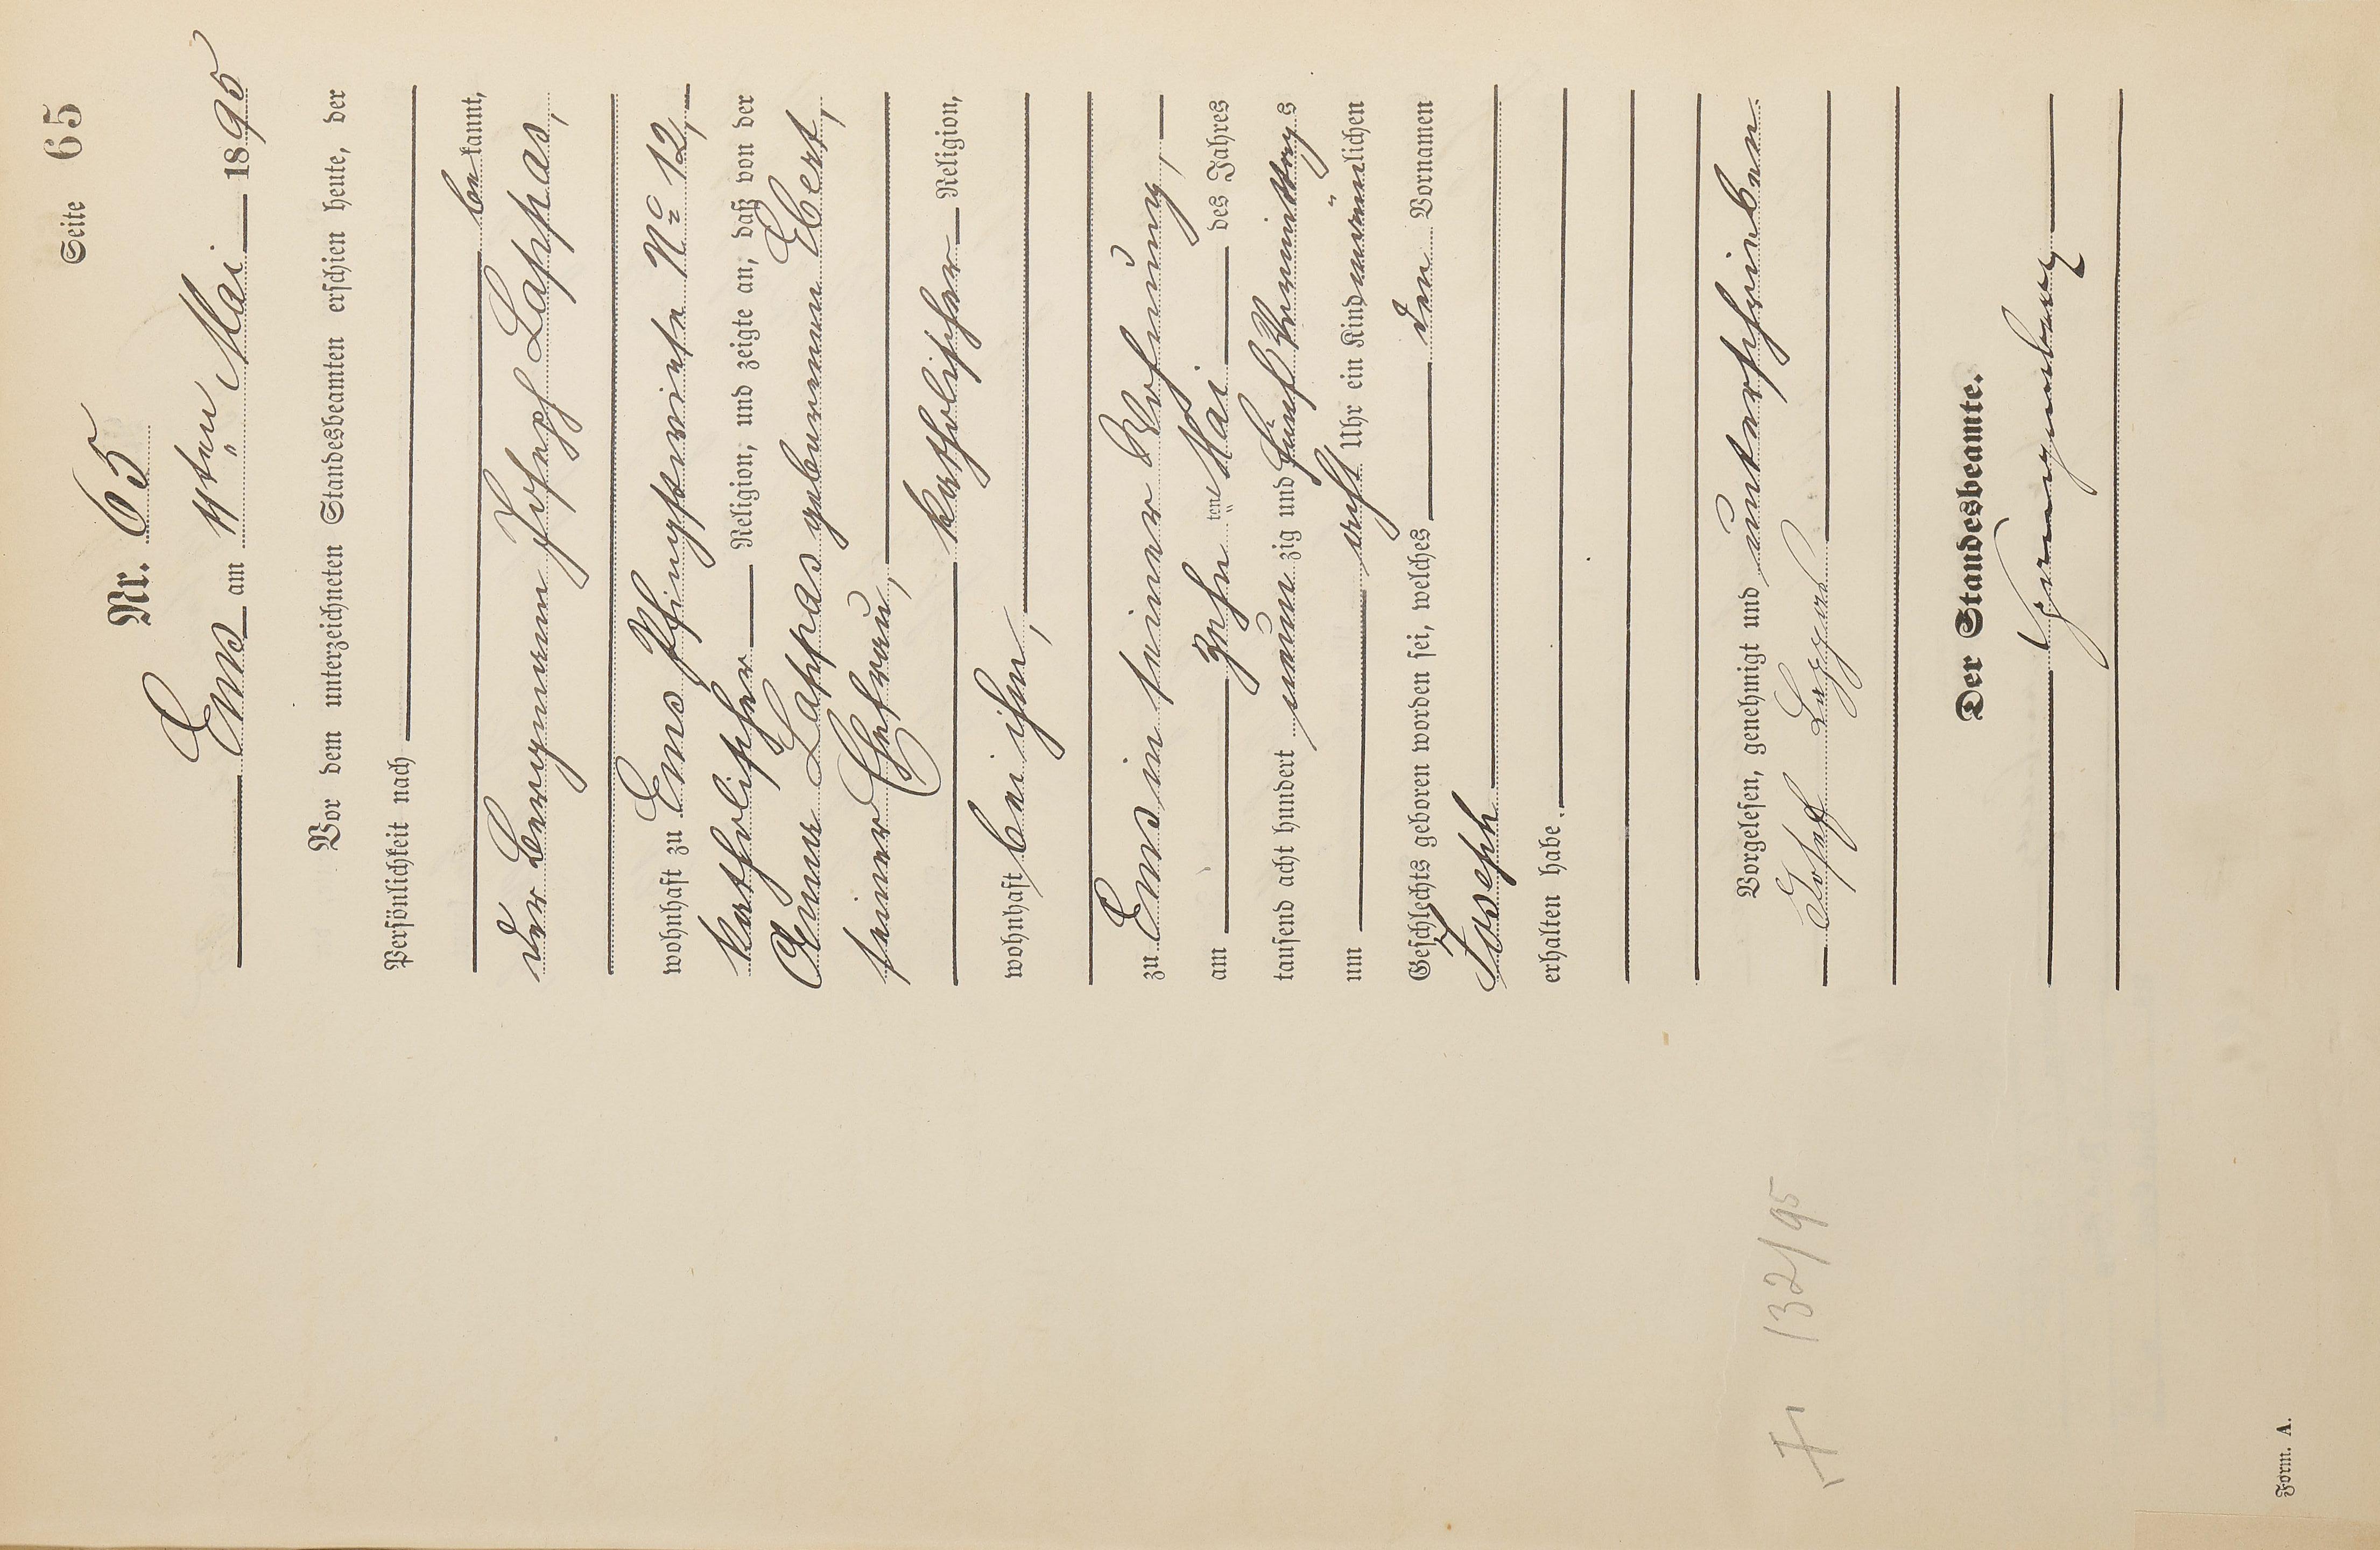 Seite 65
Nr. 65
Ems am 11ten Mai 1895
Vor dem unterzeichneten Standesbeamten erschien heute, der
Persönlichkeit nach
bekannt,
der Bergmann Joseph Lappas,
wohnhaft zu Ems Pfingstwiese No 12,
katholischer Religion, und zeigte an, daß von der
Anna Lappas geborenen Ebert,
seiner Ehefrau,
katholischer Religion,
wohnhaft bei ihm,
zu Ems in seiner Wohnung,
am zehnten Mai des Jahres
tausend acht hundert neunzig und fünf Vormittags
um acht Uhr ein Kind männlichen
Geschlechts geboren worden sei, welches den Vornamen
Joseph
erhalten habe.
Vorgelesen, genehmigt und unterschrieben
Josef Lappas
Der Standesbeamte.
† 132/95
Form. A.